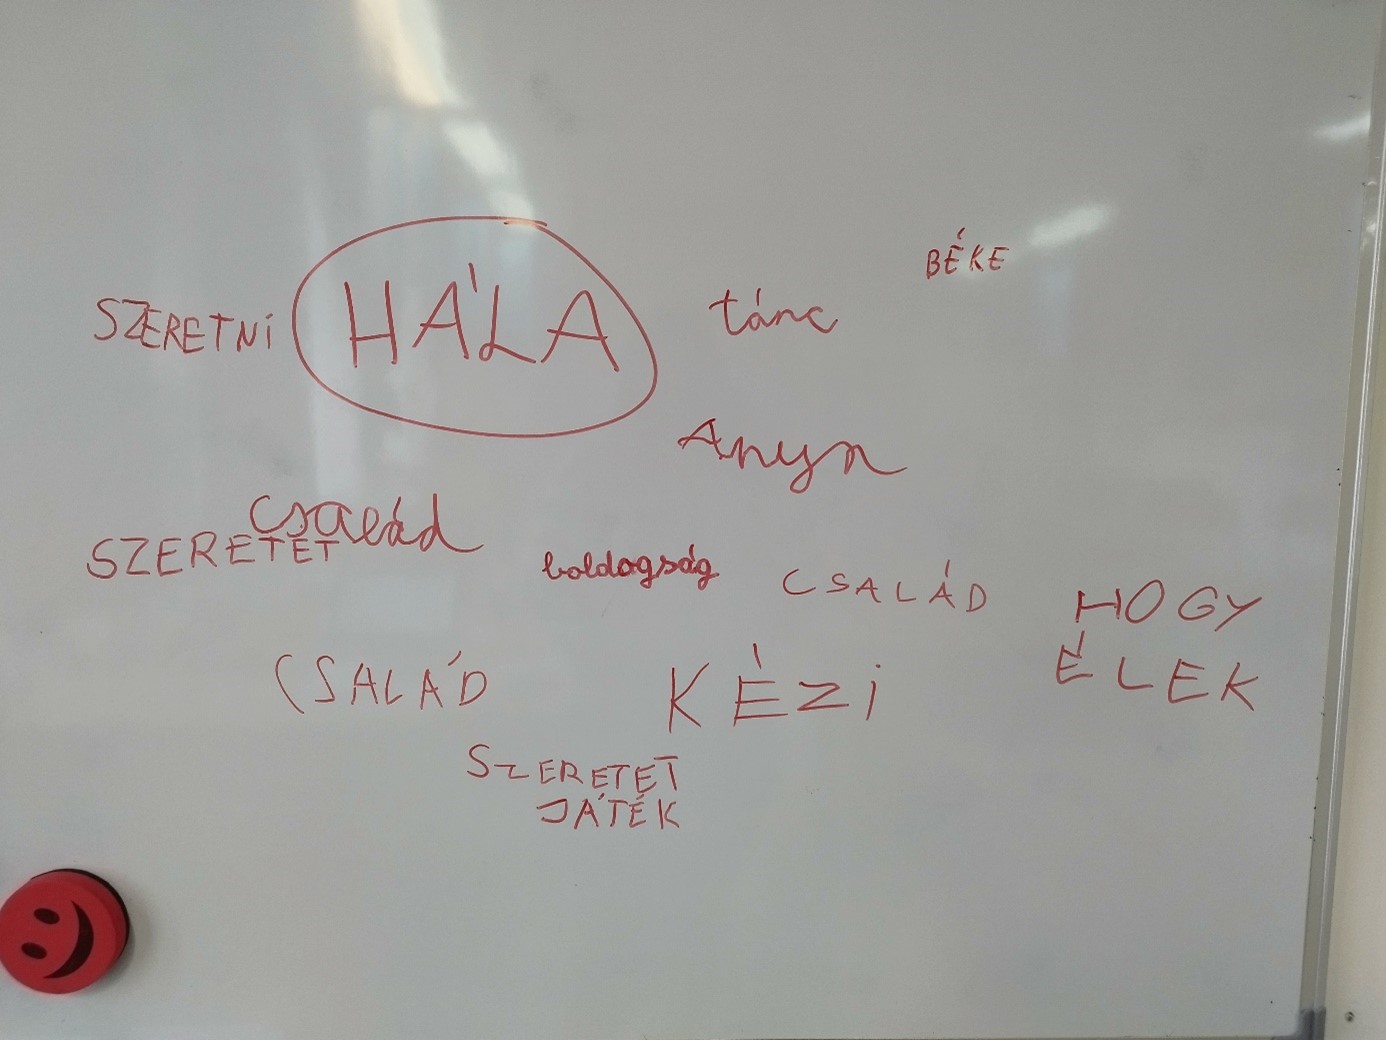 BÉKE
SZERETNI HÁLA tánc
Anyu
család
SZERETET
boldogság CSALÁD HOGY
ÉLEK
CSALÁD KÉZI
SZERETET
JÁTÉK